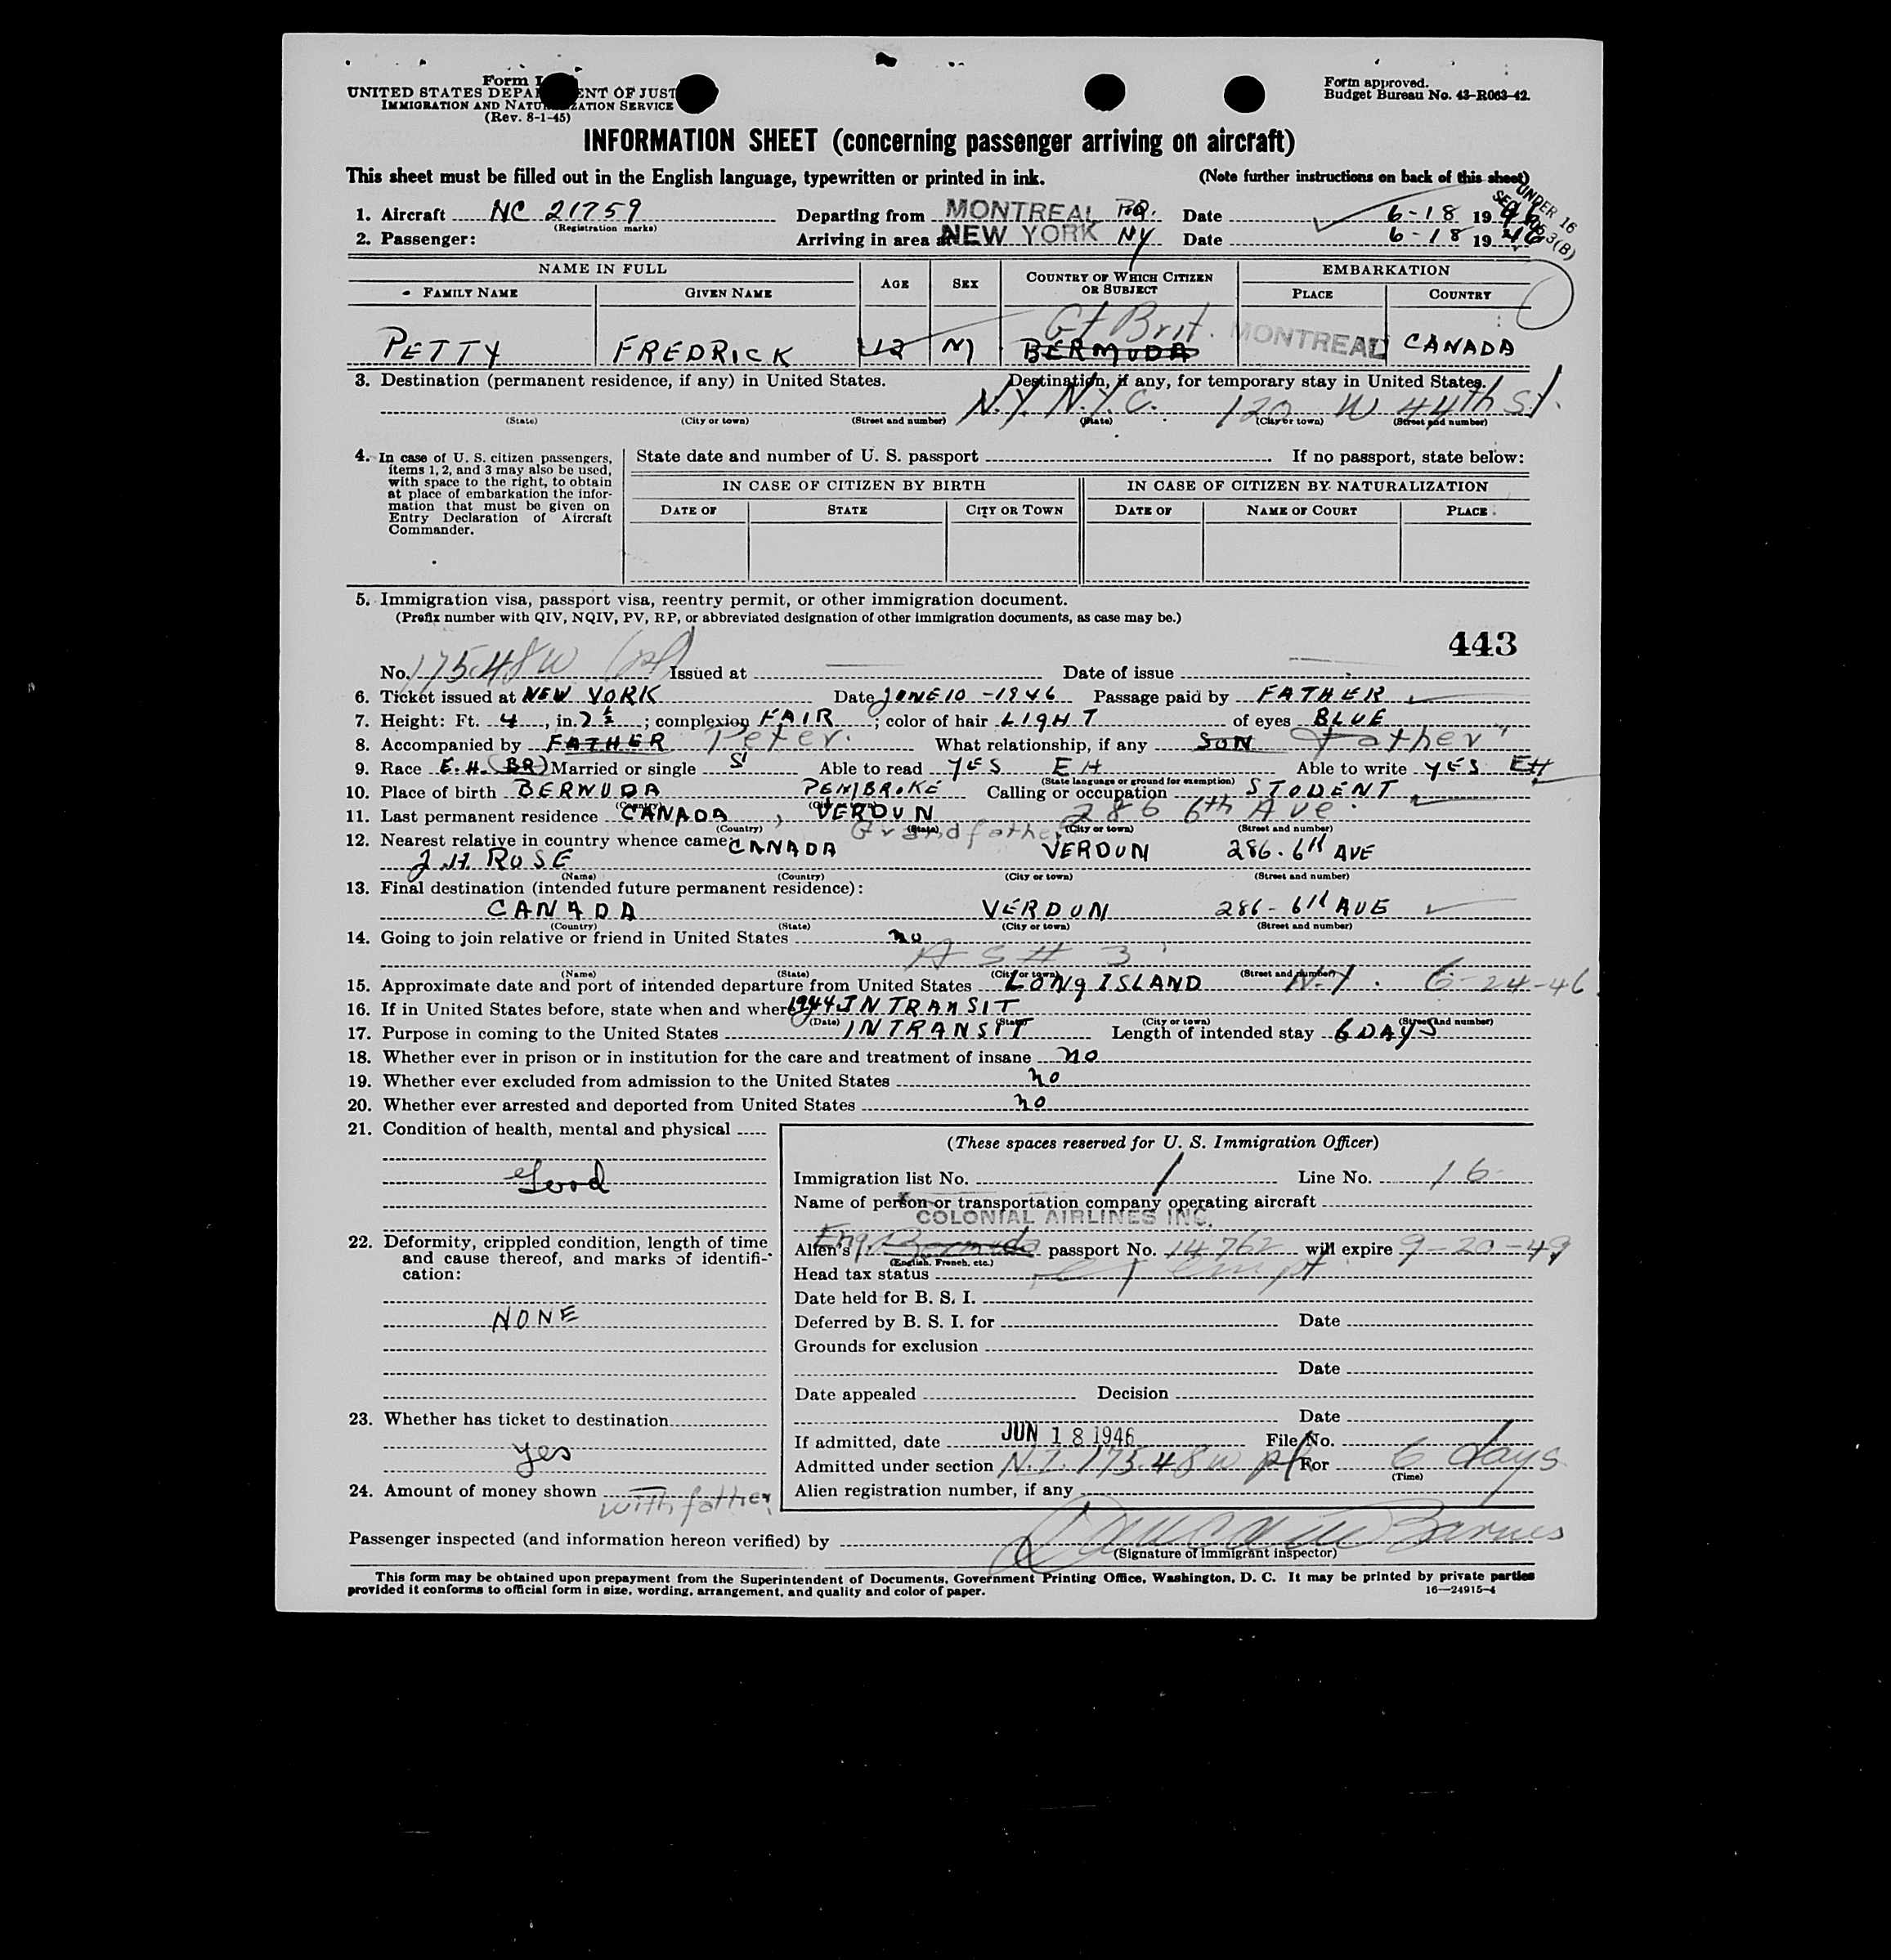 Form I
UNITED STATES DEPA ENT OF JUST
IMMIGRATION AND NATU ZATION SERVICE
(Rev. 8-1-45)
Form approved.
Budget Bureau No. 43-R063-42.
INFORMATION SHEET (concerning passenger arriving on aircraft)
This sheet must be filled out in the English language, typewritten or printed in ink. (Note further instructions on back of this sheet)
UNDER 16
1. Aircraft NC 21759 Departing from MONTREAL P.Q. Date 6-18 1946
(Registration marks)
2. Passenger: Arriving in area at NEW YORK NY Date 6-18 1946
NAME IN FULL AGE SEX COUNTRY OF WHICH CITIZEN OR SUBJECT EMBARKATION
FAMILY NAME GIVEN NAME PLACE COUNTRY
Gt Brit.
PETTY FREDRICK 12 M BERMUDA MONTREAL CANADA
3. Destination (permanent residence, if any) in United States. Destination, if any, for temporary stay in United States.
N.Y. N.Y.C. 120 W 44th St.
(State) (City or town) (Street and number) (State) (City or town) (Street and number)
4. In case of U. S. citizen passengers, items 1, 2, and 3 may also be used, with space to the right, to obtain at place of embarkation the information that must be given on Entry Declaration of Aircraft Commander.
State date and number of U. S. passport If no passport, state below:
IN CASE OF CITIZEN BY BIRTH IN CASE OF CITIZEN BY NATURALIZATION
DATE OF STATE CITY OR TOWN DATE OF NAME OF COURT PLACE
5. Immigration visa, passport visa, reentry permit, or other immigration document.
(Prefix number with QIV, NQIV, PV, RP, or abbreviated designation of other immigration documents, as case may be.)
443
No. 175.48W (pf) Issued at Date of issue
6. Ticket issued at NEW YORK Date JUNE 10 - 1946 Passage paid by FATHER
7. Height: Ft. 4, in. 7 1/2; complexion FAIR; color of hair LIGHT of eyes BLUE
8. Accompanied by FATHER Peter. What relationship, if any SON Father
9. Race E.H. (BR) Married or single S Able to read YES EH Able to write YES EH
(State language or ground for exemption)
10. Place of birth BERMUDA PEMBROKE Calling or occupation STUDENT
(Country) (City or town)
11. Last permanent residence CANADA, VERDUN 286 6th Ave.
(Country) (State) (City or town) (Street and number)
12. Nearest relative in country whence came Grandfather CANADA VERDUN 286. 6th AVE
J.H. ROSE
(Name) (Country) (City or town) (Street and number)
13. Final destination (intended future permanent residence):
CANADA VERDUN 286 - 6th AVE
(Country) (State) (City or town) (Street and number)
14. Going to join relative or friend in United States no
AS # 3
(Name) (State) (City or town) (Street and number)
15. Approximate date and port of intended departure from United States LONG ISLAND N.Y. 6-24-46
16. If in United States before, state when and where 1944 IN TRANSIT
(Date) (State) (City or town) (Street and number)
17. Purpose in coming to the United States IN TRANSIT Length of intended stay 6 DAYS
18. Whether ever in prison or in institution for the care and treatment of insane no
19. Whether ever excluded from admission to the United States no
20. Whether ever arrested and deported from United States no
21. Condition of health, mental and physical
Good
22. Deformity, crippled condition, length of time and cause thereof, and marks of identification:
NONE
23. Whether has ticket to destination
yes
24. Amount of money shown
with father
(These spaces reserved for U. S. Immigration Officer)
Immigration list No. 1 Line No. 16
Name of person or transportation company operating aircraft
COLONIAL AIRLINES INC.
Alien's Eng. Bermuda passport No. 14762 will expire 9-20-49
(English, French, etc.)
Head tax status exempt
Date held for B. S. I.
Deferred by B. S. I. for Date
Grounds for exclusion
Date
Date appealed Decision
Date
If admitted, date JUN 18 1946 File No.
Admitted under section N.I. 175.48W pf For 6 days
(Time)
Alien registration number, if any
Passenger inspected (and information hereon verified) by Barnes
(Signature of immigrant inspector)
This form may be obtained upon prepayment from the Superintendent of Documents, Government Printing Office, Washington, D. C. It may be printed by private parties
provided it conforms to official form in size, wording, arrangement, and quality and color of paper. 16—24915-4